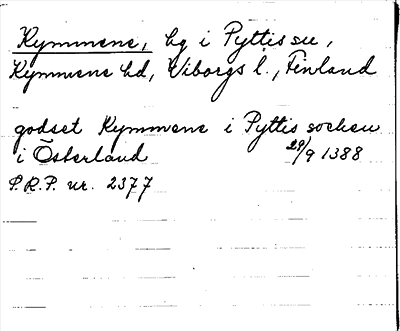 Kymmene, hg i Pyttis sn,
Kymmene hd, Viborgs l., Finland
godset Kymmene i Pyttis socken
i Österland 29/9 1388
P.R.P. nr. 2377